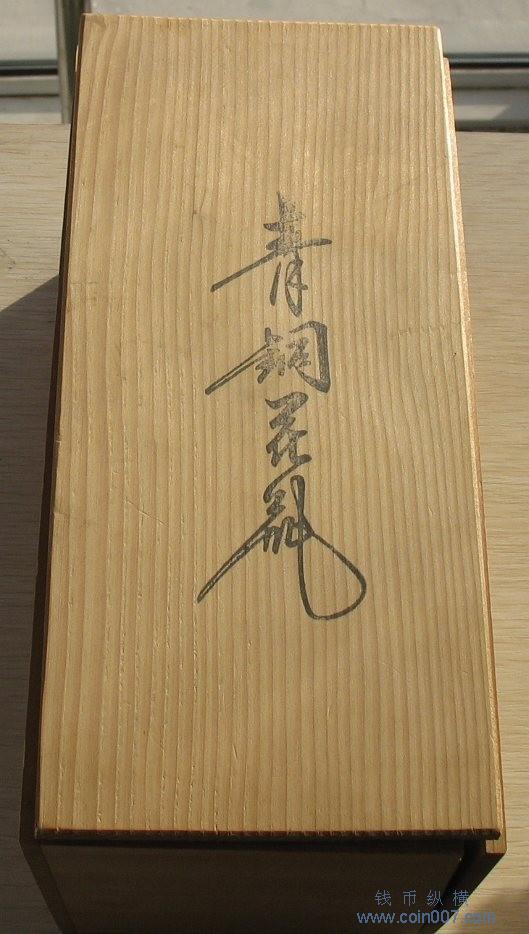 青銅花瓶
钱币纵横
www.coin007.com